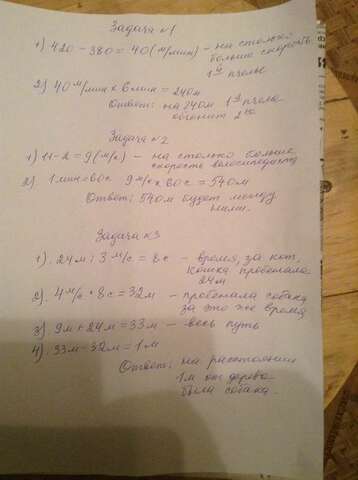 Задача №1
1) 420 – 380 = 40 (м/мин) – на столько
больше скорость
1й пчелы
2) 40 м/мин х 6 мин = 240м
Ответ: на 240м 1я пчела
обгонит 2ю
Задача №2
1) 11-2 = 9 (м/с) – на столько больше
скорость велосипедиста
2) 1 мин = 60с 9 м/с х 60с = 540м
Ответ: 540м будет между
ними.
Задача №3
1). 24м : 3 м/с = 8с – время, за кот.
кошка пробежала
24м
2) 4 м/с • 8с = 32м – пробежала собака
за это же время
3) 9м + 24м = 33м – весь путь
4) 33м – 32м = 1м
Ответ: на расстоянии
1м от дерева
была собака.